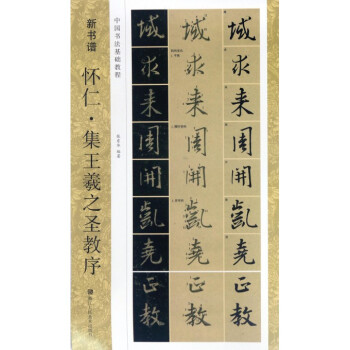 新书谱
怀仁·集王羲之圣教序
中国书法基础教程
编著
域求来周開凱堯正教
域求来周開凱堯正教
域求来周開凱堯正教